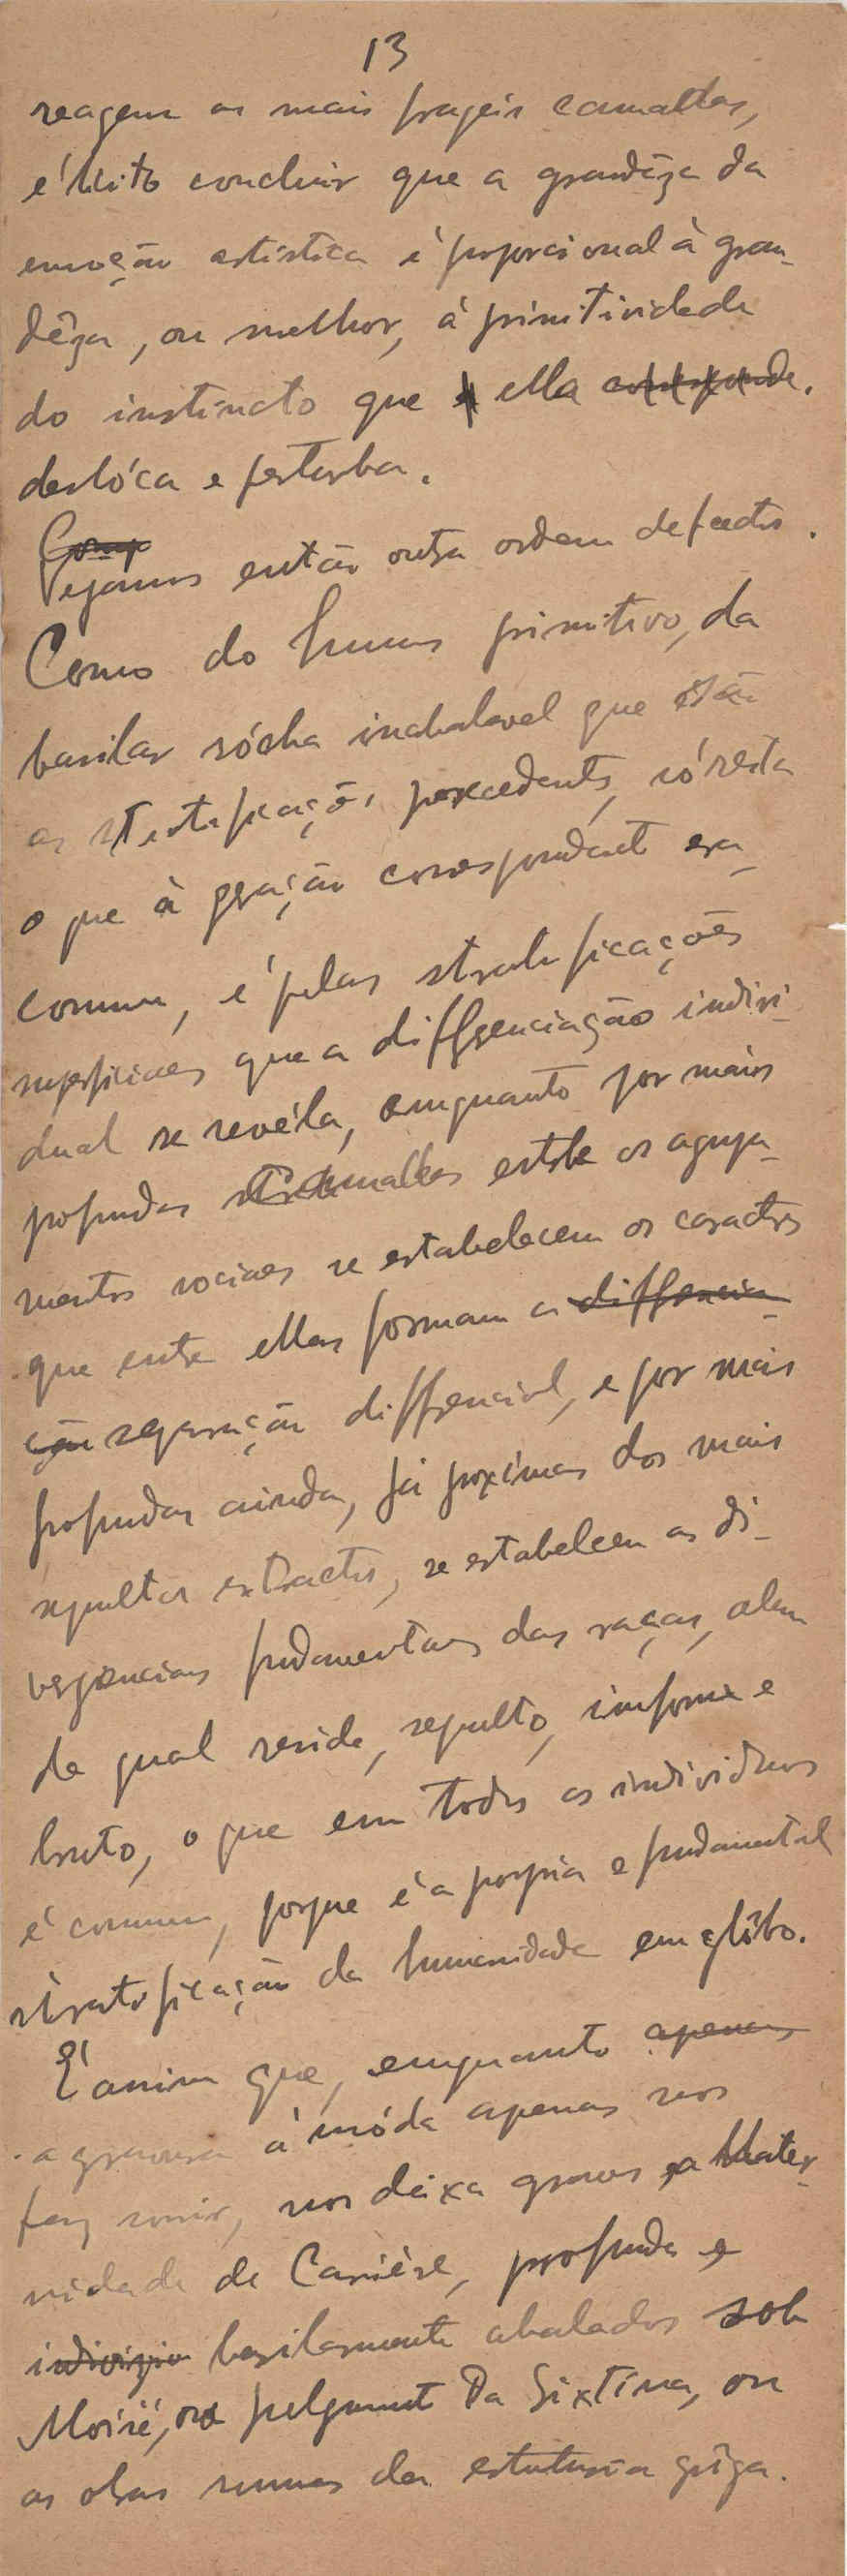 13
reagem as mais frageis camadas,
é licito concluir que a grandêza da
emoção artistica é proporcional à gran-
dêza, ou melhor, á primitividade
do instincto que ella corresponde.
deslóca e perturba.
Como
Vejamos então outra ordem de factos.
Como do humus primitivo, da
basilar rócha inabalavel que são
as stratificações precedentes, só resta
o que à geração correspondente era
commum, é pelas stratificações
superficiaes que a differenciação indivi-
dual se revéla, emquanto por mais
profundas entre os agrupa-
mentos sociaes se estabelecem os caractres
que entre elles formam a differencia-
ção separação differencial, e por mais
profundas ainda, já proximas dos mais
sepultos extractos, se estabelecem as di-
vergencias fundamentaes das raças, alem
da qual reside, sepulto, informe e
bruto, o que em todos os individuos
é commum, porque é a propria e fundamental
stratificação da humanidade em glôbo.
É assim que, emquanto apenas
a gravura à móda apenas nos
faz sorrir, nos deixa graves a Mater-
nidade de Carrière, profunda e
basilarmente abalados sob
Moisé, ou julgamento Da Sixtina, ou
as obras summas da estatuaria grêga.